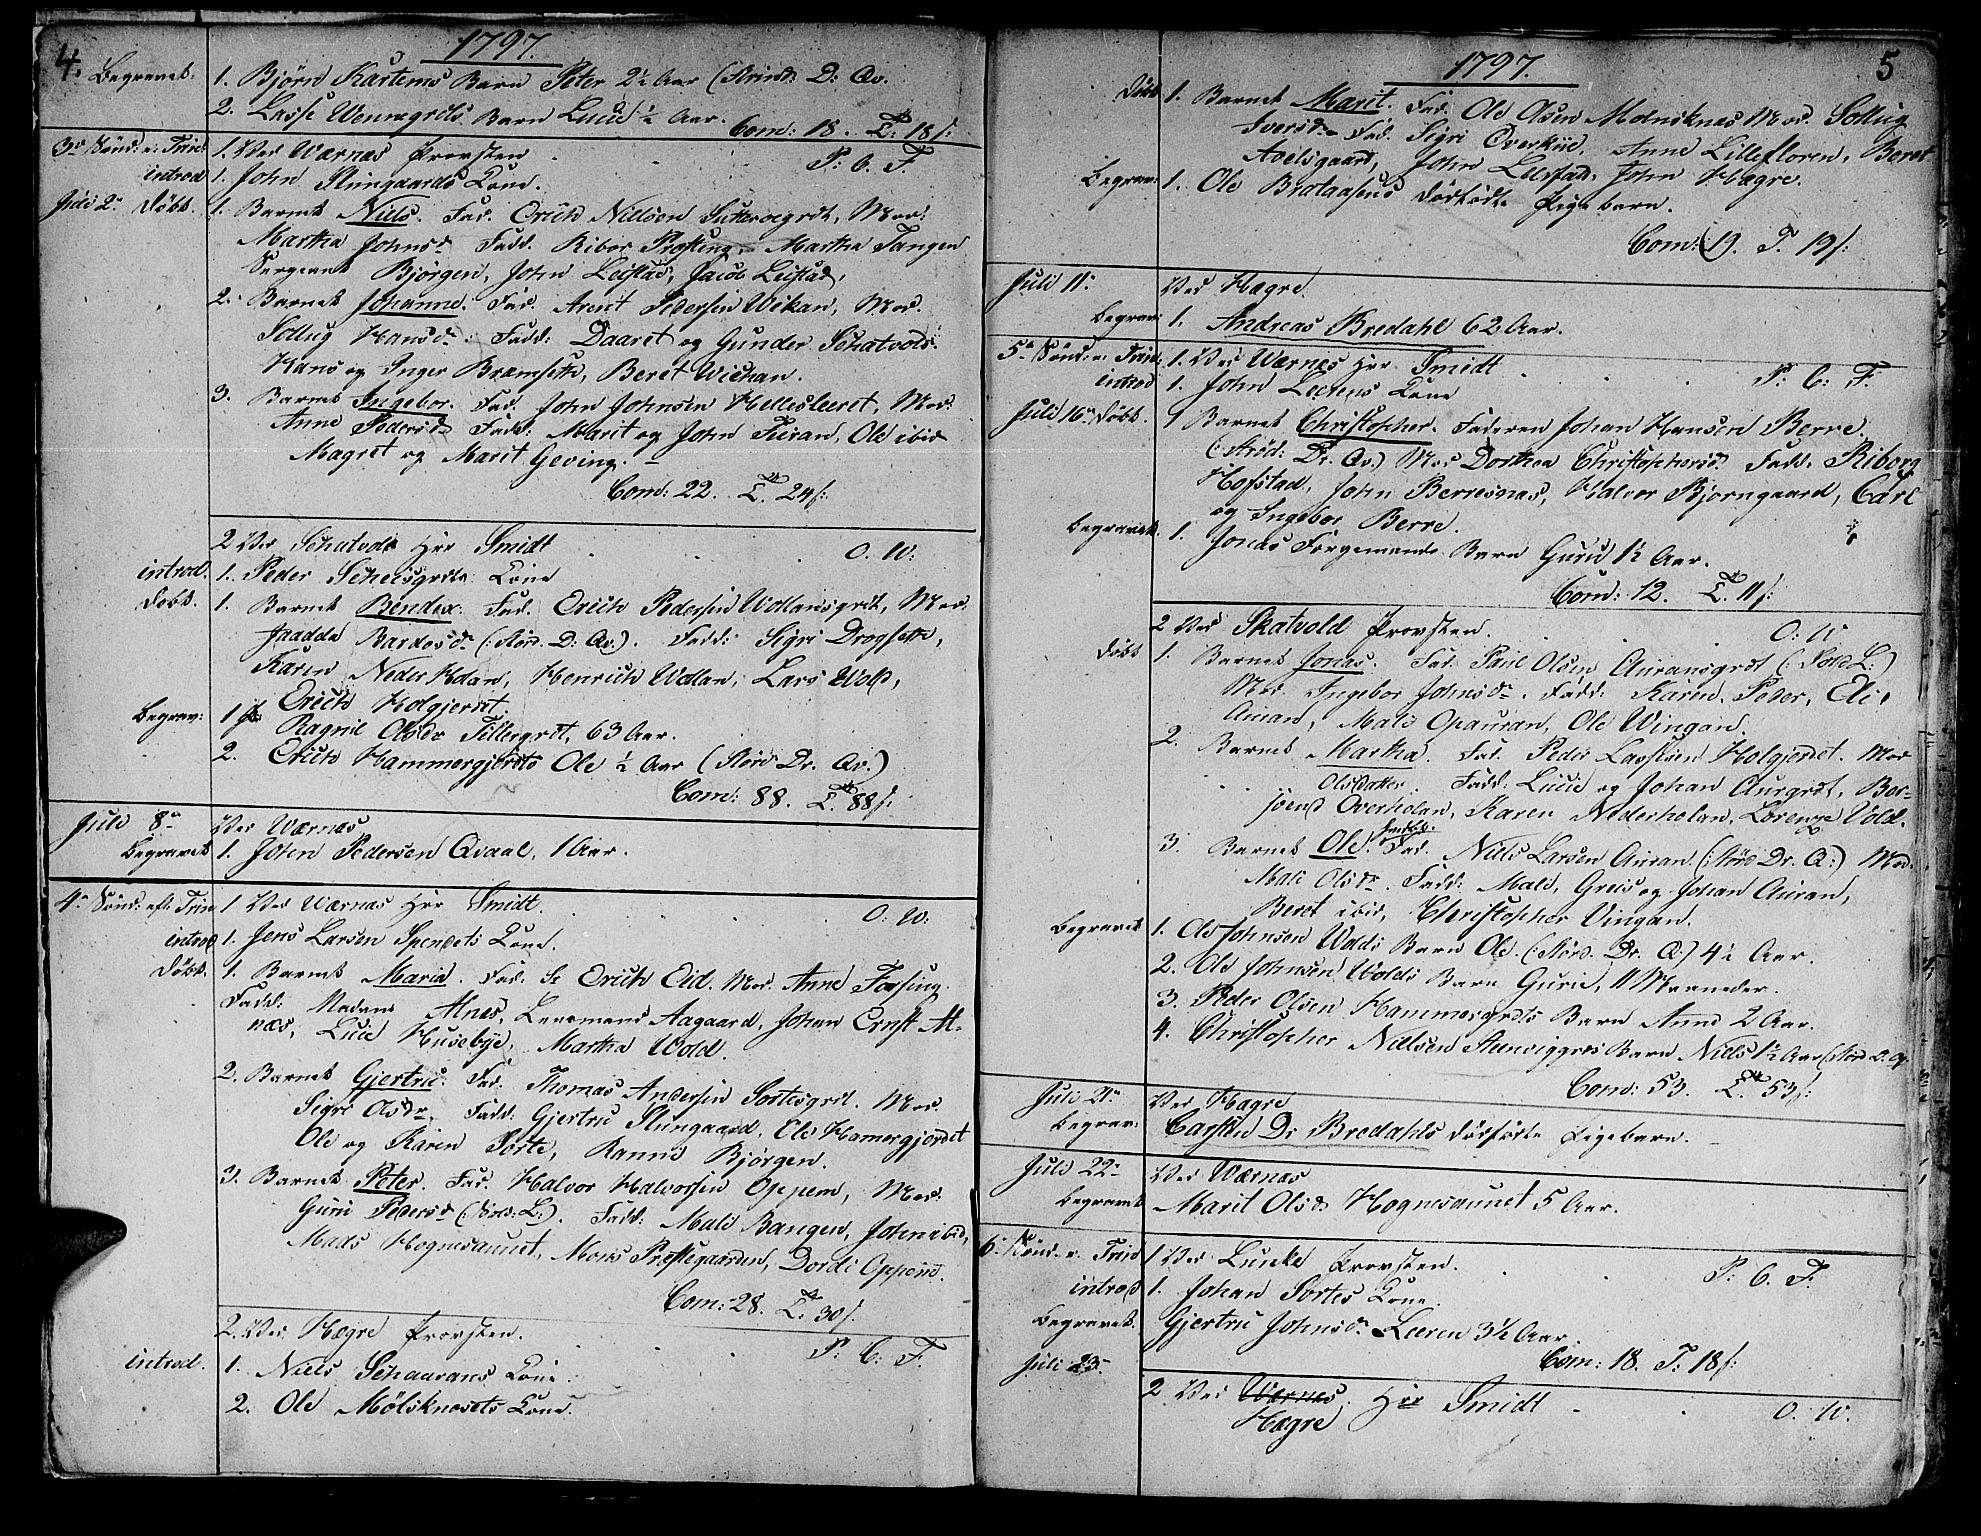 4.
1797.
Begravet: 1. Bjørn Kartems Barn Peter 2½ Aar (Strind: D: Qv.
2. Lasse Wennegrdts Barn Lucie ½ Aar.
Com: 18. T. 18 s:
3die Sönd: e: Trin: 1. Ved Wærnæs Provsten P: C. F.
introd 1. John Slungaards Kone.
Juli 2den Döbt. 1. Barnet Niels. Fad. Erich Nielsen, Mod:
Martha Johnsdr. Fadd. Ribor Præsting, Martha Tangen
Sergeant Bjørgen, John Leistad, Jacob Leistad,
2. Barnet Johanne. Fad. Arent Pedersen Wikan, Mod.
Sollug Hansdr. Fadd: Daaret og Gunder Schatvold.
Hans og Inger Bramseth, Beret Wichan.
3. Barnet Ingebor. Fad. John Johnsen Hellesleeret, Mod:
Anne Pedersdr. Fadd: Marit og John Fieran, Ole ibid
Magret og Marit Geving.
Com: 22. T. 24 s:
2 Ved Schatvold Hr Smidt O. W.
introd. 1. Peder Kone
Döbt. 1. Barnet Bendex. Fad. Erich Pedersen Wollansgrdt, Mod.
Jaadde Bardosdr (:Nord. D: Qv.). Fadd: Sigri Drogseth,
Karen Nederholan, Henrich Wollan, Lars Wold,
Erich Holgjerdet.
Begrav: 1 Ragnil Olsdr Tillergrdt, 63 Aar.
2. Erich Hammergjerdets Ole ½ Aar (Nord Dr. Qv.)
Com: 88. T. 88 s:
Juli 8de Ved Wærnæs
Begravet 1. John Pedersen Qvaal, 1 Aar.
4de Sönd: eft: Trin 1 Ved Wærnæs Hr Smidt. O. W.
introd 1. Jens Larsen Spendets Kone.
Döbt. 1. Barnet Maria. Fad. Erich Eid. Mod. Anne Forsing.
Fadd: Madame Alnæs, Lensmand Aagaard, Johan Ernst Al-
næs, Lucie Husebye, Martha Wold.
2. Barnet Gjertru. Fad. Thomas Andersen Sortesgrdt. Mod.
Sigri Olsdr. Fadd. Gjertru Slungaard, Ole Hamergjerdet
Ole og Karen Sorte, Ranne Bjørgen.
3. Barnet Peter. Fad. Halvor Halvorsen Oppem, Mod.
Guru Pedersdr (:Nord: L:). Fadd: Mali Bangen, John ibid,
Mads Hognesaunet, Mons Præstegaarden, Dordi Oppem.
Com: 28. T. 30 s.
2. Ved Hegre Provsten. P: C: F.
introd. 1. Niels Schaarans Kone.
2. Ole Mölsknesets Kone.
5
1797.
Döbt 1. Barnet Marit. Fad. Ole Olsen Molnsknes Mod. Sollug
Iversdr. Fad. Sigri Overkiil, Anne Lillefloren, Beret
Avelsgaard, John Leistad, John Hegre.
Begrav: 1. Ole Brataasens dödfödte Pigebarn.
Com: 19. T. 19 s:
Juli 11: Ved Hægre.
Begrav: 1. Andreas Bredahl 62 Aar.
5te Sönd: e: Trin: 1. Ved Wærnes Hr Smidt P: C: F.
introd 1. John Kone
Juli 16de Döbt. 1 Barnet Christopher. Faderen Johan Hansen Berre.
(:Nord: Dr. Qv.) Mod Dorthea Christophersdr. Fadd. Riborg
Hofstad, John Berresnas, Halvor Bjorngaard, Carl
og Ingebor Berre.
Begravet. 1. Jonas Forgemands Barn Guru 1½ Aar.
Com: 12. T. 11 s:
2 Ved Skatvold Provsten. O: W
Döbt 1. Barnet Jonas. Fad. Paul Olsen Auransgrdt (:Nord L:)
Mod. Ingebor Johnsdr. Fadd: Karen, Peder, Eli
Auran, Mali Opauran, Ole Wingan.
2. Barnet Martha. Fad. Peder Lassesen Holgjerdet. Mod
Olsdatter. Fadd: Lucie og Johan Aurgrdt, Ber-
Overholan, Karen Nederholan, Lorenze Vold.
3. Barnet Ole. Fad. Niels Larsen Auran (:Nord Dr. Q:) Mod.
Mali Olsdr. Fadd: Mali, Greis og Johan Auran,
Beret ibid, Christopher Vingan.
Begravet 1. Ole Johnsen Wolds Barn Ole (:Nord. Dr. Q.) 4½ Aar.
2. Ole Johnsen Wolds Barn Guru, 11 Maaneder.
3. Peder Olsen Hammergrdts Barn Anne 2 Aar.
4. Christopher Nielsen Steenviggrdts Barn Niels 1½ Aar (:Nord D. Qv
Com: 53. T. 53 s:
Juli Ved Hagre
Begrav: Carsten D: Bredahls dödfödte Pigebarn.
Juli 22de Ved Wærnæs
Begravet Marit Olsdr Hognesaunet 5 Aar.
6te Sönd. e. Trin 1 Ved Luncke Provsten. P: C. F:
introd 1. Johan Sortes Kone.
Begravet. Gjertru Johnsdr. Leeren 3½ Aar.
Juli 23de Com: 18. T: 18 s:
2 Ved Wærnes Hr Smidt O. W.
Hægre